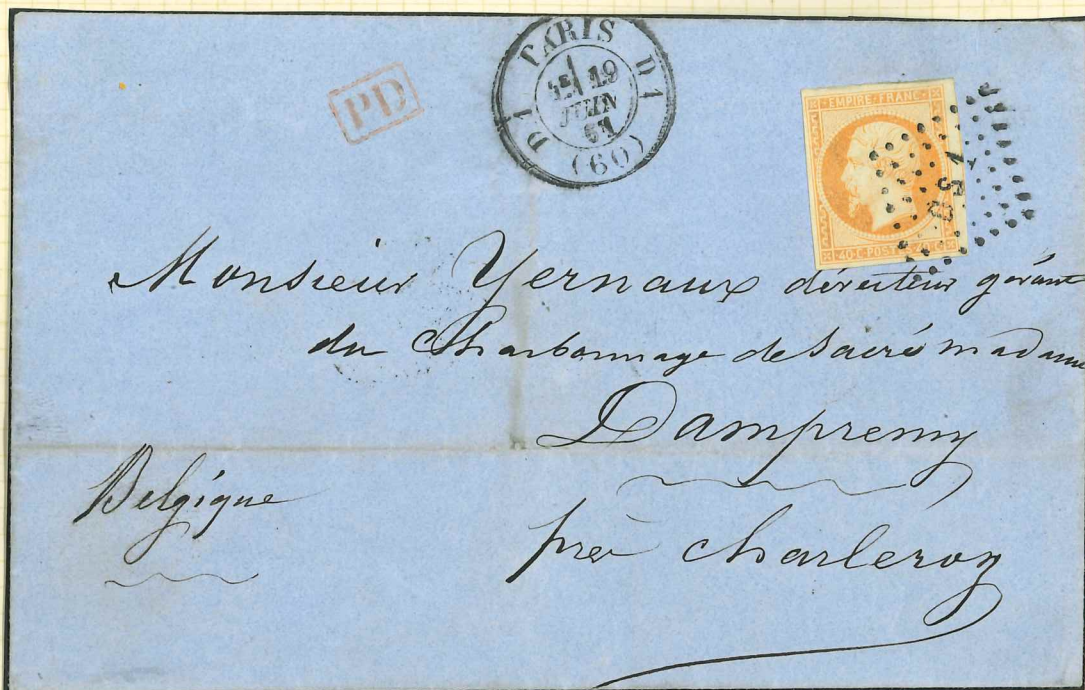 PD
PARIS
D1 D1
19
JUIN
61
(60)
EMPIRE FRANC
40 C POSTES 40 C
DS1
Monsieur Yernaux directeur gérant
du Charbonnage de Sacré madame
Dampremy
près Charleroy
Belgique